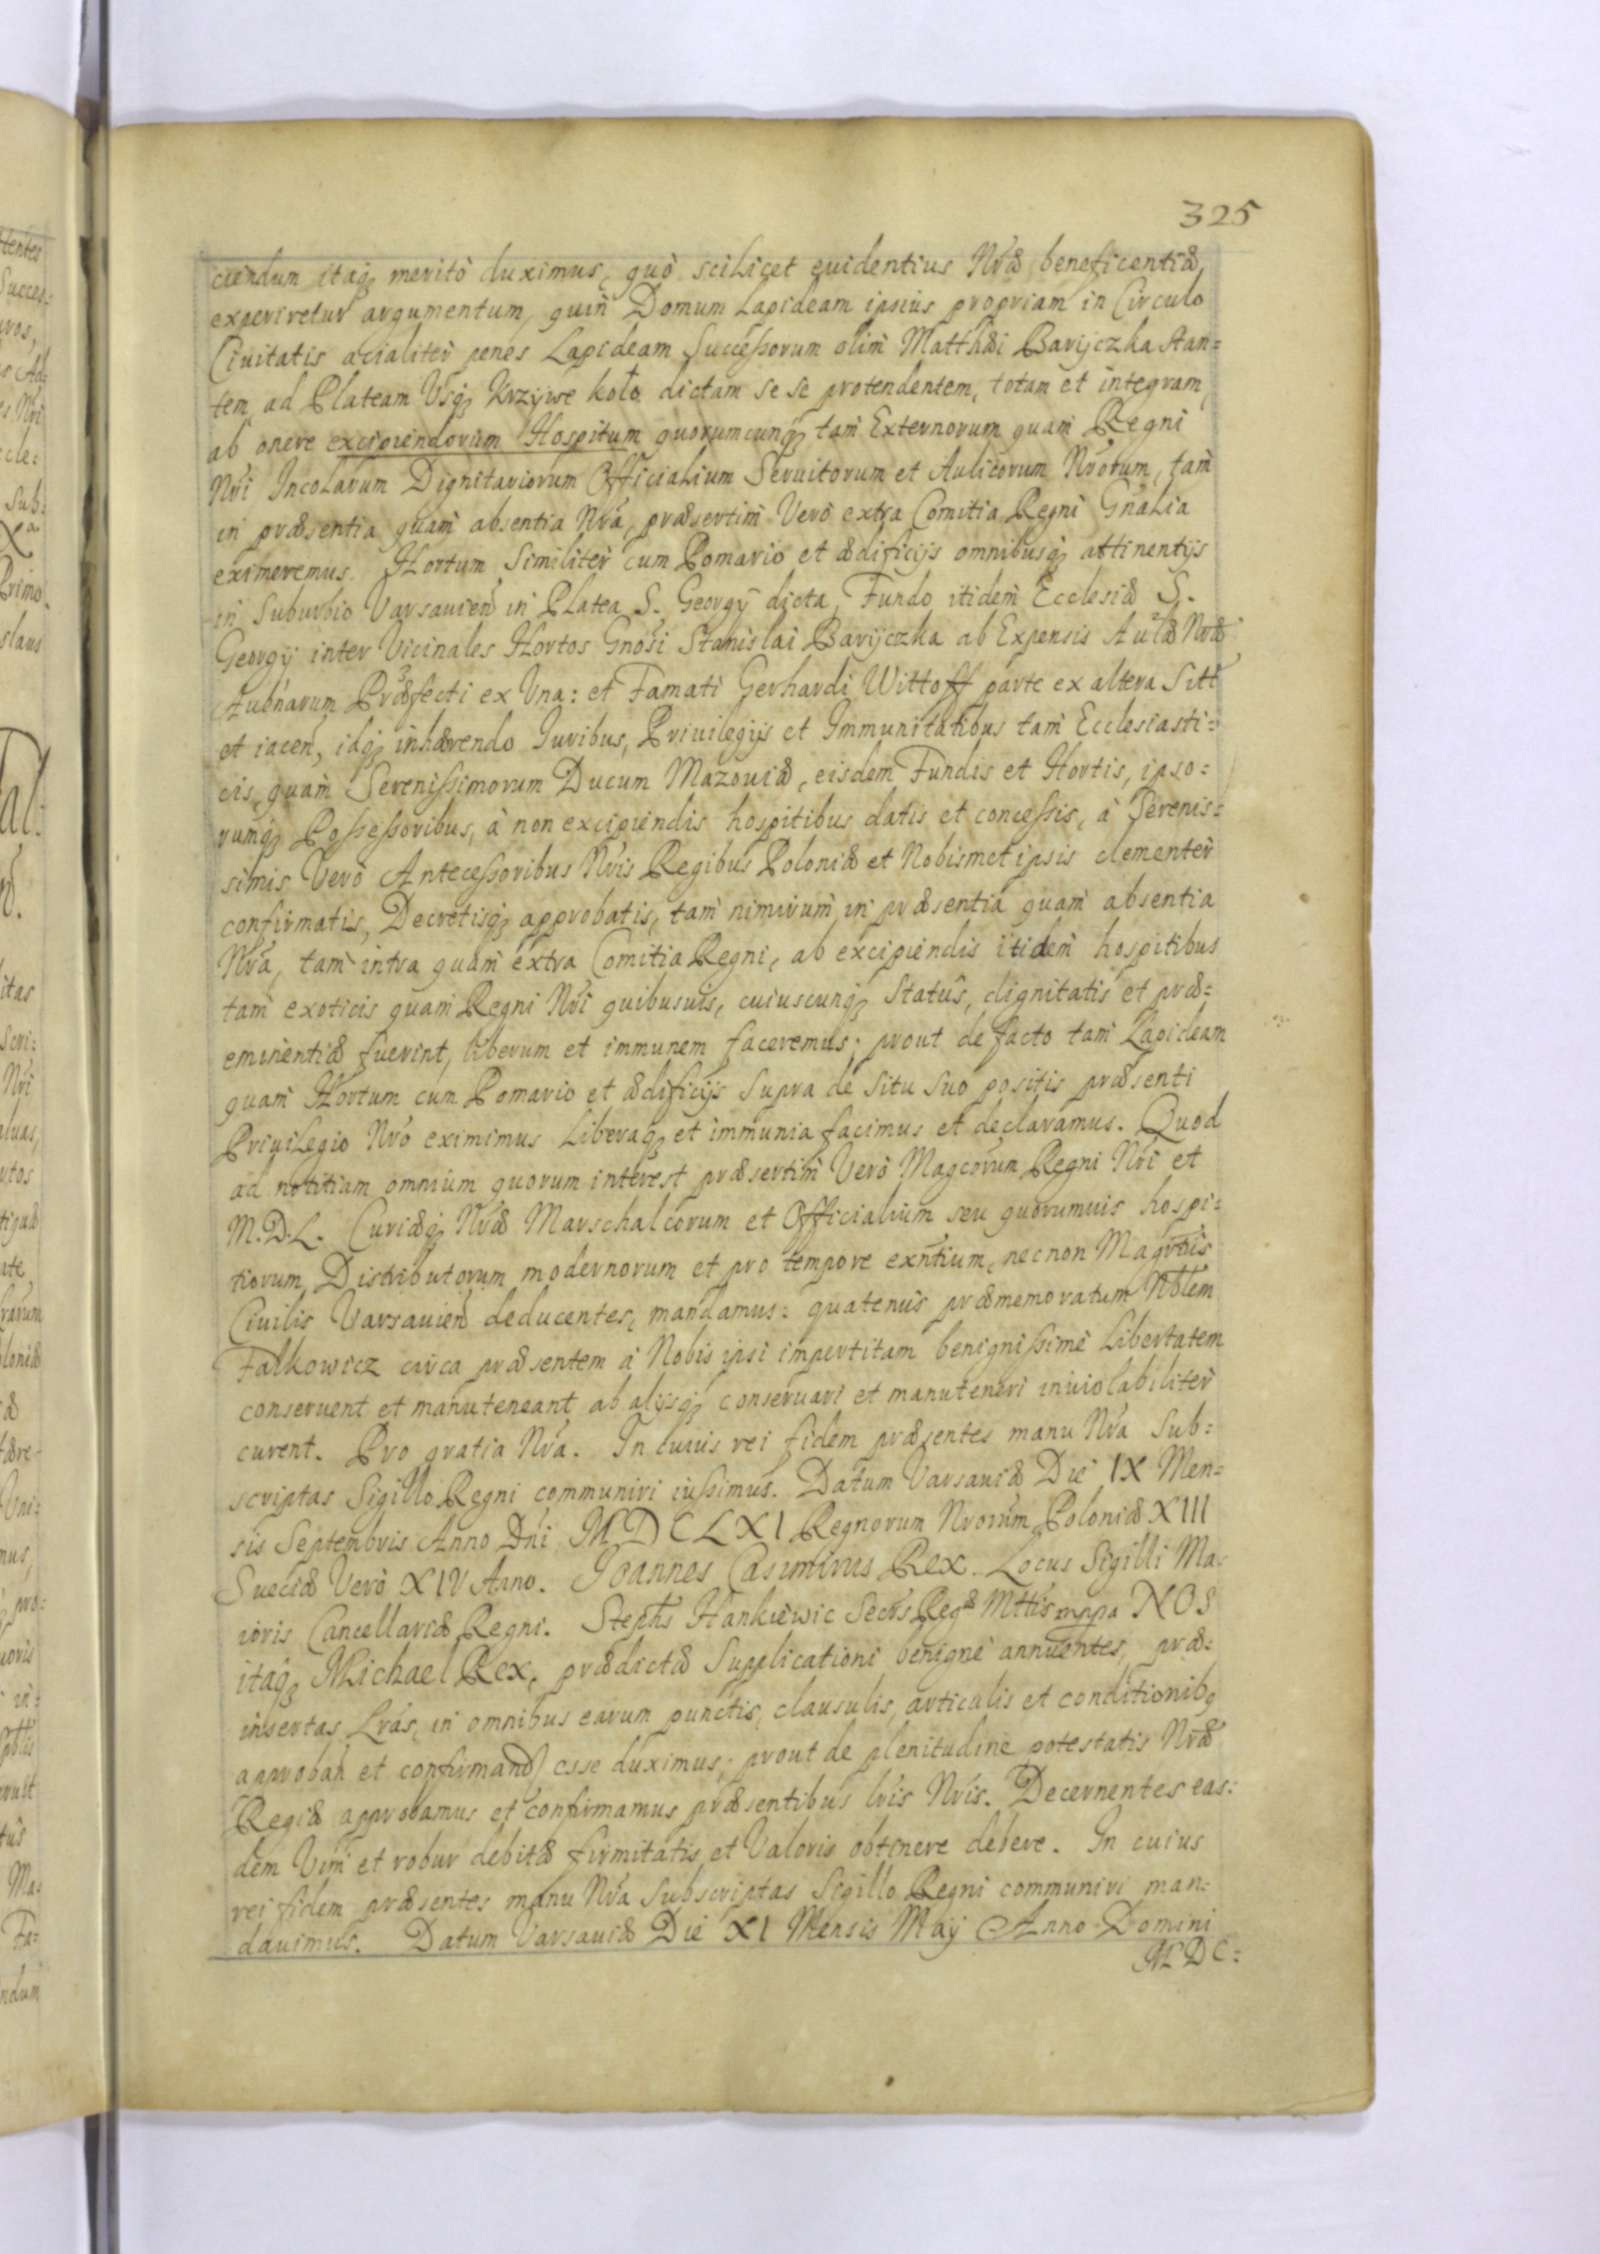 325
ciendum itaq₃ meritò duximus, quò scilicet euidentius Nræ beneficentiæ
experiretur argumentum, quin Domum Lapideam ipsius propriam in Circulo
Ciuitatis acialiter penes Lapideam Successorum olim Matthæi Barijczka stan=
tem ad Plateam Usq₃ Krzywe koło dictam se se protendentem, totam et integram,
ab onere excipiendorum Hospitum quorumcunq₃ tam Externorum quam Regni
Nri Incolarum Dignitariorum Officialium Seruitorum et Aulicorum Nrorum, tam
in præsentia quam absentia Nrâ, præsertim Verò extra Comitia Regni Gnalia
eximeremus. Hortum similiter cum Pomario et ædificijs omnibusq₃ attinentijs
in Suburbio Varsauien in Platea S. Georgij dicta, Fundo itidem Ecclesiæ S.
Georgij inter Vicinales Hortos Gnosi Stanislai Barijczka ab Expensis Aulæ Nræ
Auenarum Præfecti ex Una: et Famati Gerhardi Wittoff parte ex altera Sitt
et iacen, idq₃ inhærendo Iuribus, Priuilegijs et Immunitatibus tam Ecclesiasti=
cis, quàm Serenissimorum Ducum Mazouiæ, eisdem Fundis et Hortis, ipso=
rumq₃ Possessoribus, à non excipiendis hospitibus datis et concessis, à Serenis=
simis Verò Antecessoribus Nris Regibus Poloniæ et Nobismet ipsis clementer
confirmatis, Decretisq₃ approbatis, tam nimirum in præsentia quam absentia
Nra, tam intra quam extra Comitia Regni, ab excipiendis itidem hospitibus
tam exoticis quam Regni Nri quibusuis, cuiuscunq₃ Statûs, dignitatis et præ=
eminentiæ fuerint, liberum et immunem faceremus; prout de facto tam Lapideam
quam Hortum cum Pomario et ædificijs supra de situ suo positis præsenti
Priuilegio Nro eximimus Liberaq₃ et immunia facimus et declaramus. Quod
ad notitiam omnium quorum interest præsertim Verò Magcorum Regni Nri et
M.D.L. Curiæq₃ Nræ Marschalcorum et Officialium seu quorumuis hospi=
tiorum, Distributorum modernorum et pro tempore exntium, necnon Magrtûs
Ciuilis Varsauien deducentes, mandamus: quatenus præmemoratum Nblem
Falkowicz circa præsentem à Nobis ipsi impertitam benignissimè Libertatem
conseruent et manuteneant ab alijsq₃ conseruari et manuteneri inuiolabiliter
curent. Pro gratia Nra. In cuius rei fidem præsentes manu Nra Sub=
scriptas Sigillo Regni communiri iussimus. Datum Varsauiæ Die IX Men=
sis Septembris Anno Dni MDCLXI Regnorum Nrorum Poloniæ XIII
Sueciæ Verò XIV Anno. Joannes Casimirus Rex. Locus Sigilli Ma=
ioris Cancellariæ Regni. Stephs Hankiewic Secrs Regæ Mttis mppa NOS
itaq₃ Michael Rex, prædictæ Supplicationi benignè annuentes, præ=
insertas Lras, in omnibus earum punctis, clausulis, articulis et conditionibꝫ
approban et confirmand esse duximus, prout de plenitudine potestatis Nræ
Regiæ approbamus et confirmamus præsentibus lris Nris. Decernentes eas=
dem Vim et robur debitæ firmitatis et Valoris obtinere debere. In cuius
rei fidem præsentes manu Nra Subscriptas Sigillo Regni communiri man=
dauimus. Datum Varsauiæ Die XI Mensis Maij Anno Domini
MDC=